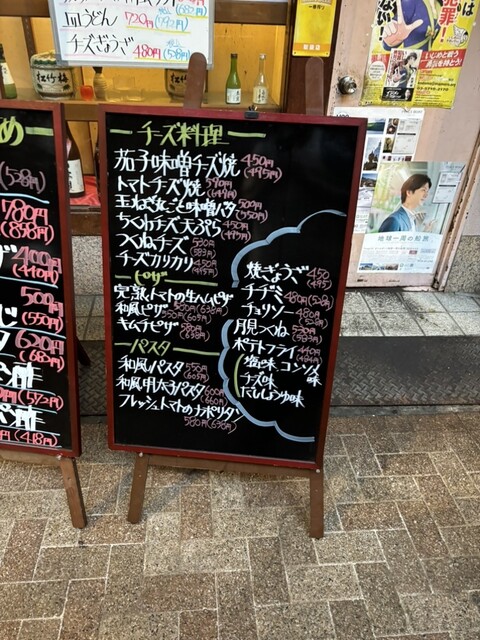 皿うどん 720円 (792円)
チーズぎょうざ 480円 (528円)
松竹梅
め
(528円)
780円
(858円)
400円
(440円)
500円
(550円)
620円
(682円)
(572円)
(418円)
チーズ料理
茄子味噌チーズ焼 450円
(495円)
トマトチーズ焼 590円
(649円)
玉ねぎ丸ごと味噌バタ 500円
(550円)
ちくわチーズ天ぷら 450円
(495円)
つくねチーズ 530円
(583円)
チーズカリカリ 450円
(495円)
ピザ
完熟トマトの生ハムピザ
580円 (638円)
和風ピザ 550円 (605円)
キムチピザ 580円
(638円)
パスタ
和風パスタ 550円
(605円)
和風明太子パスタ 600円
(660円)
フレッシュトマトのナポリタン
580円 (638円)
焼ぎょうざ 450
(495)
チヂミ 480円 (528)
チョリソー 480
(528)
月見つくね 530円
(583円)
ポテトフライ 440円
(484円)
塩味 コンソメ味
チーズ味
だししょうゆ味
犯罪!
地球一周の船旅